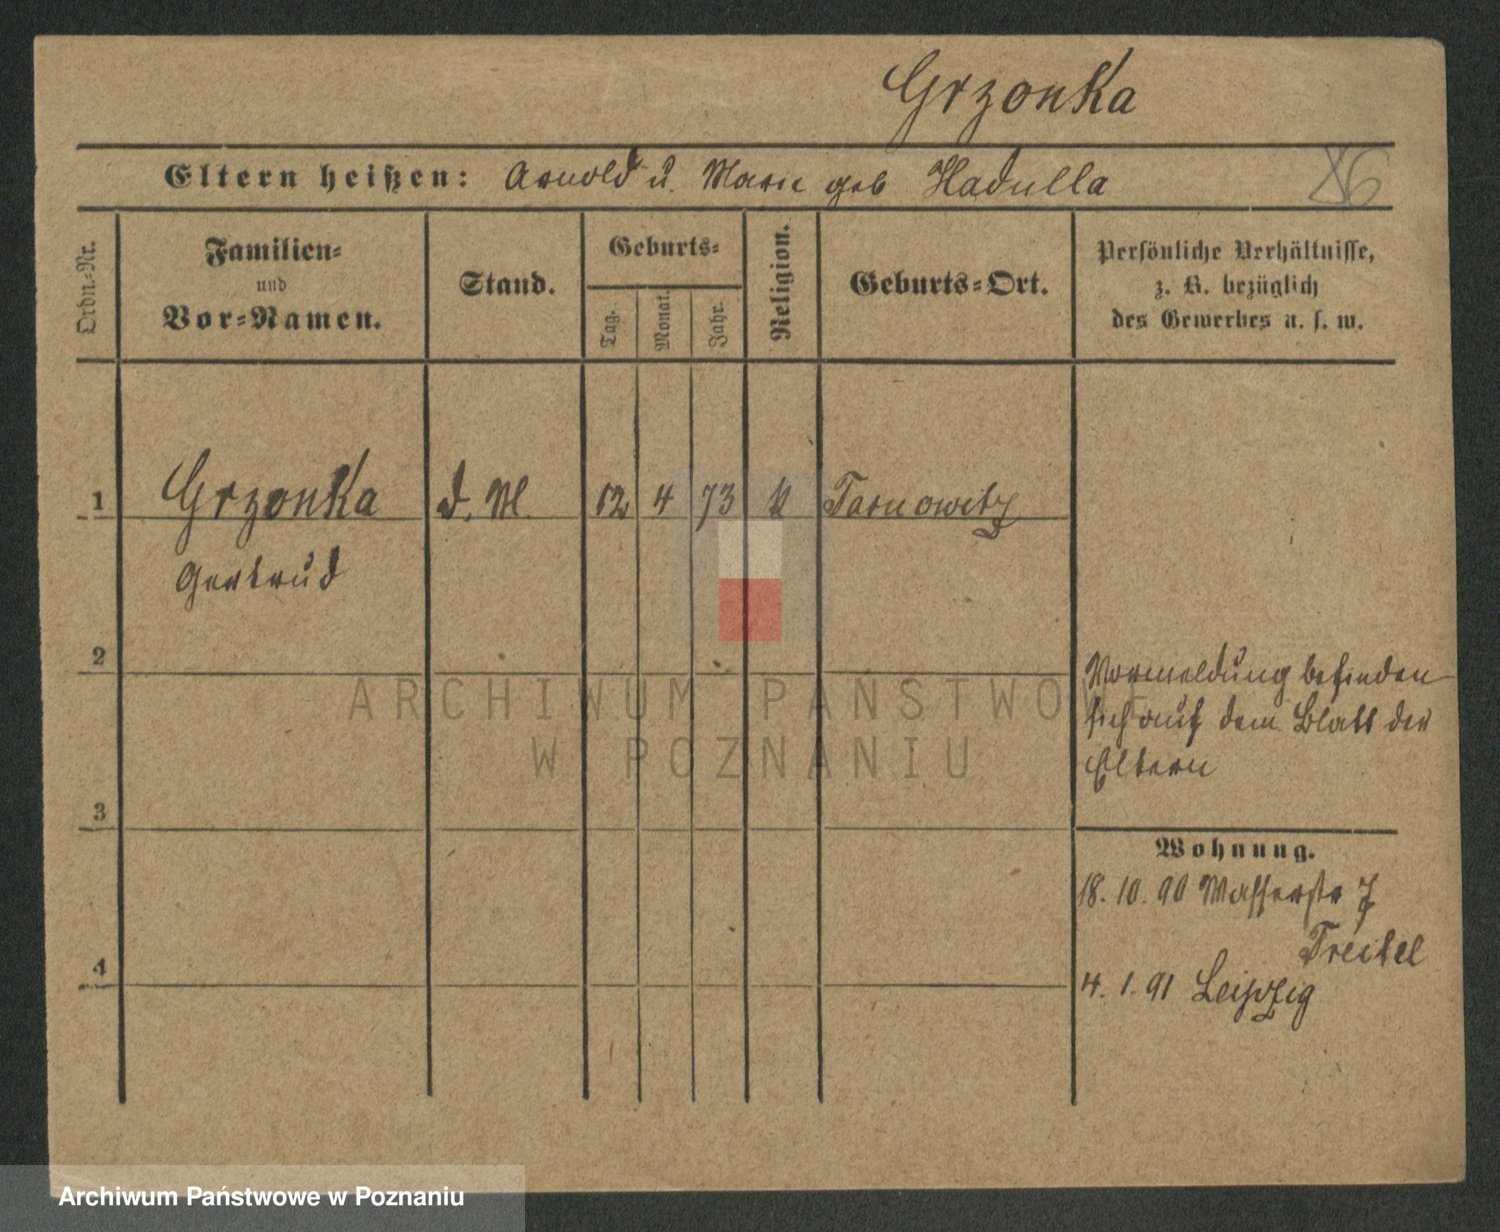 Grzonka
Eltern heißen: Arnold u. Marie geb Hadulla
86
Ordn.-Nr.
Familien-
und
Vor-Namen.
Stand.
Geburts-
Tag.
Monat.
Jahr.
Religion.
Geburts-Ort.
Persönliche Verhältnisse,
z. B. bezüglich
des Gewerbes u. s. w.
1 Grzonka d. M. 12 4 73 Tarnowitz
Gertrud
2
3
4
Vormeldung befinden
sich auf dem Blatt der
Eltern
Wohnung.
18. 10. 90 Wasserstr 7
Treitel
4. 1. 91 Leipzig
ARCHIWUM PAŃSTWOWE
W POZNANIU
Archiwum Państwowe w Poznaniu